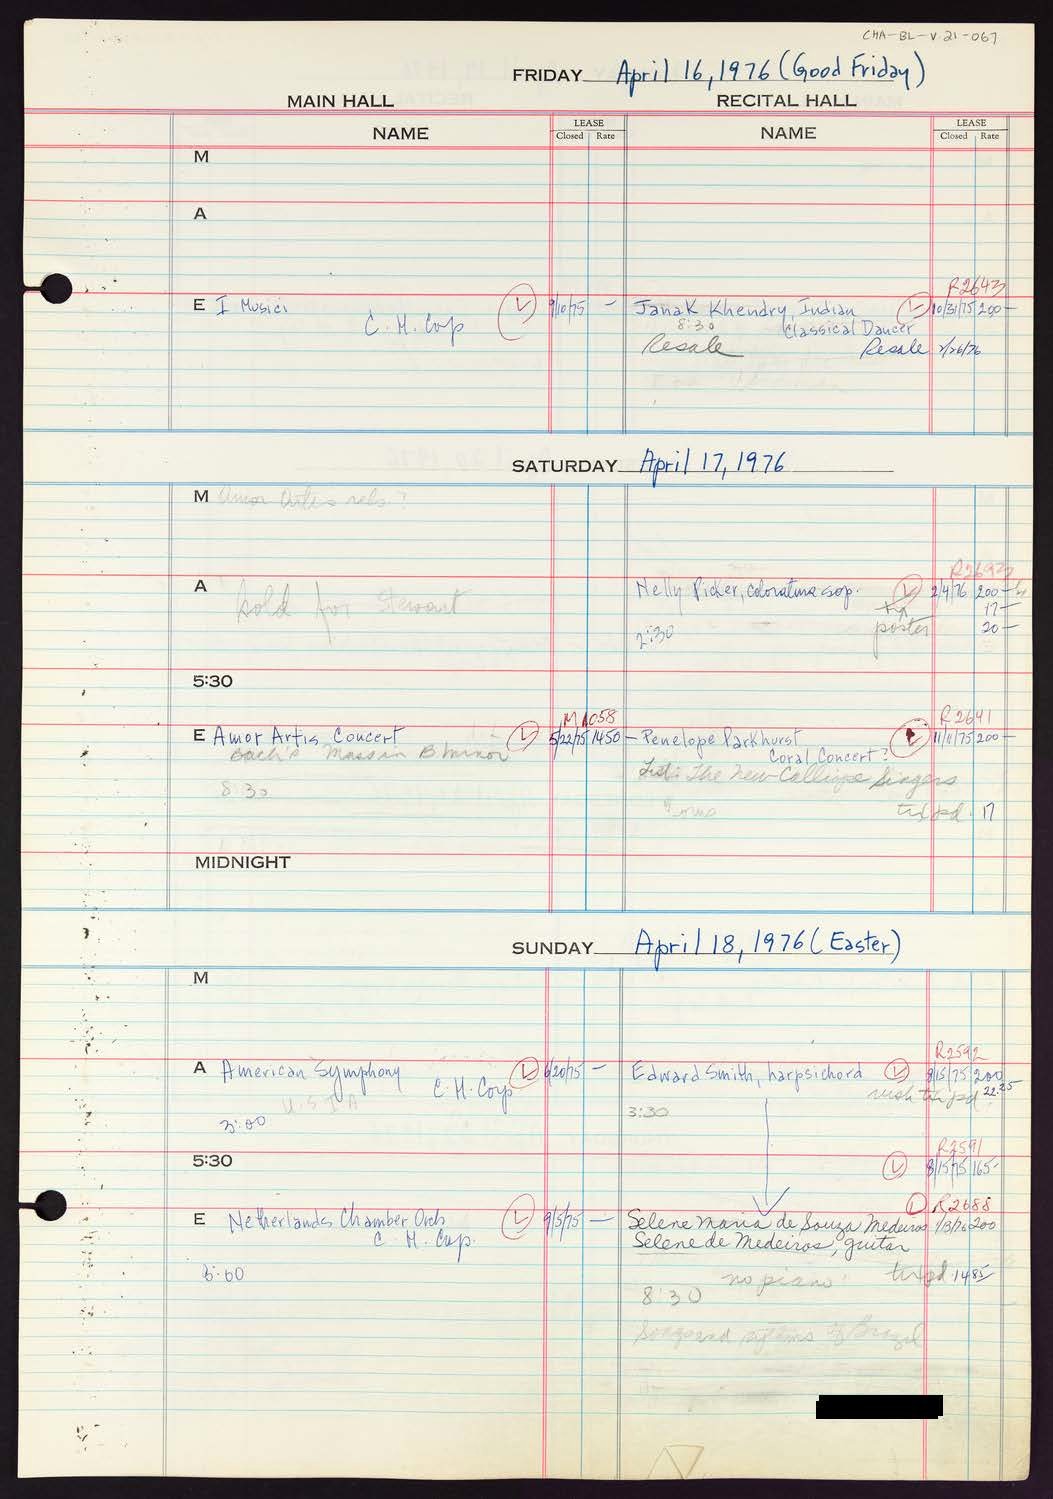 CHA-BL-V.21-067
FRIDAY April 16, 1976 (Good Friday)
MAIN HALL RECITAL HALL
NAME LEASE Closed Rate NAME LEASE Closed Rate
M
A
R2643
E I Musici L 9/10/75 — Janak Khendry, Indian L 10/31/75 200—
C. H. Corp 8:30 Classical Dancer
Resale Resale 2/26/76
SATURDAY April 17, 1976
M Amor Artis rehs ?
R2693
A Sold for Stewart Nelly Picker, coloratura sop. L 2/4/76 200—
17—
2:30 poster 20—
5:30
M 1058 R2641
E Amor Artis Concert L 5/22/75 1450— Penelope Parkhurst L 11/11/75 200—
Bach's Mass in B minor Coral Concert?
List: The New Calliope Singers
8:30
pd. 17
MIDNIGHT
SUNDAY April 18, 1976 (Easter)
M
R2592
A American Symphony L 6/20/75 — Edward Smith, harpsichord L 8/15/75 200
C. H. Corp pd 22.25
U S I A 3:30
3:00
R2591
5:30 L 8/15/75 165-
L R2688
E Netherlands Chamber Orch L 9/5/75 — Selene Maria de Souza Medeiros 1/3/76 200
C. H. Corp. Selene de Medeiros, guitar
8:00 no piano! pd 1485
8:30
Songs and rythms of Brazil